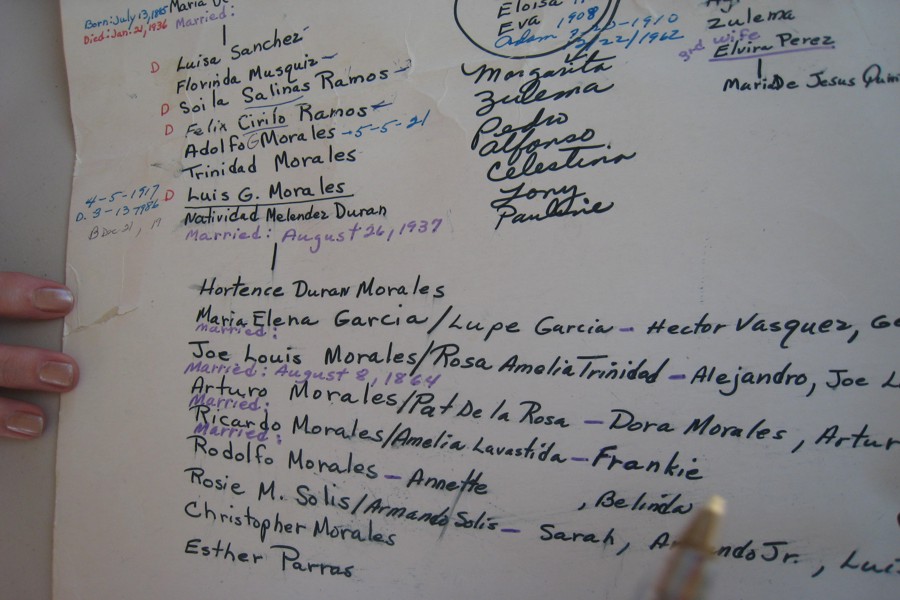 Born: July 13, 1895
Died: Jan. 21, 1936
Maria
Married:
D Luisa Sanchez
Florinda Musquiz
D Soila Salinas Ramos
D Felix Cirilo Ramos
Adolfo G Morales - 5-5-21
Trinidad Morales
4-5-1917
D Luis G. Morales
D. 3-13-1986
Natividad Melendez Duran
B Dec 21, 19
Married: August 26, 1937
Hortence Duran Morales
Maria Elena Garcia / Lupe Garcia - Hector Vasquez, Ge
Married:
Joe Louis Morales / Rosa Amelia Trinidad - Alejandro, Joe L
Married: August 8, 1864
Arturo Morales / Pat De la Rosa - Dora Morales, Artur
Married:
Ricardo Morales / Amelia Lavastida - Frankie
Married:
Rodolfo Morales - Annette , Belinda
Rosie M. Solis / Armando Solis - Sarah, Armando Jr., Lui
Christopher Morales
Esther Parras
Eloisa
Eva 1908
Adam
2/22/1962
Margarita
Zulema
Pedro
Alfonso
Celestina
Tony
Pauline
Zulema
3rd wife
Elvira Perez
Maria De Jesus Quin